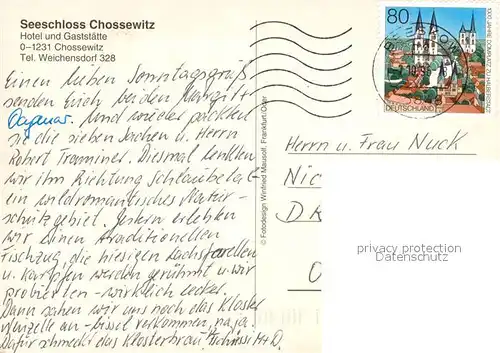 Seeschloss Chossewitz
Hotel und Gaststätte
0–1231 Chossewitz
Tel. Weichensdorf 328
Einen lieben Sonntagsgruß
senden Euch beiden Margitt
Dagmar. Und wieder packten
sie die sieben Sachen u. Herrn
Robert Trammel. Diesmal lenkten
wir ihn Richtung Schlaubetal -
ein wildromantisches Natur-
schutzgebiet. Gestern erlebten
wir einen traditionellen
Fischzug, die hiesigen Lachsforellen
u. Karpfen werden gerühmt u. wir
probierten - wirklich lecker.
Dann sahen wir uns noch das Kloster
an - bissel verkommen, naja.
Dafür schmeckt das Klosterbräu
© Fotodesign Winfried Mausolf, Frankfurt/Oder
80
1000 JAHRE DOMPLATZ HALBERSTADT
DEUTSCHLAND
Herrn u. Frau Nuck
privacy protection
Datenschutz